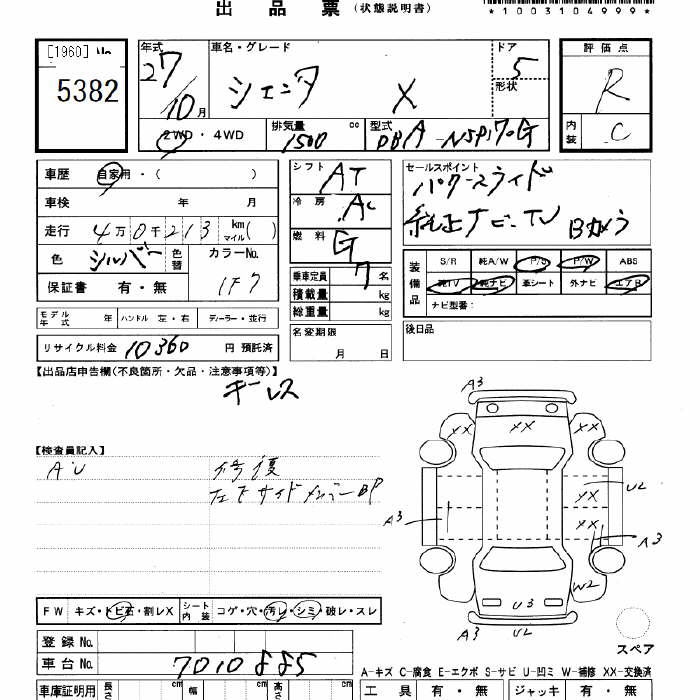 出品票（状態説明書）
*1003104999*
[1960] No
5382
年式 27／10月
車名・グレード シエンタ X
ドア 5
形状
評価点 R
内装 C
2WD・4WD
排気量 1500 cc
型式 DBA-NSP170G
車歴 自家用・（ ）
車検 年 月
走行 4万0千213 km マイル( )
色 シルバー 色替 カラーNo. 1F7
保証書 有・無
シフト AT
冷房 AC
燃料 G
乗車定員 7 名
積載量 kg
総重量 kg
セールスポイント
パワースライド
純正ナビTV Bカメラ
装備品
S/R 純A/W P/S P/W ABS
純TV 純ナビ 革シート 外ナビ エアB
ナビ型番：
モデル年式 年 ハンドル 左・右 ディーラー・並行
名変期限 月 日
後日品
リサイクル料金 10360 円 預託済
【出品店申告欄(不良箇所・欠品・注意事項等)】
キーレス
【検査員記入】
A・U 修復
左下サイドメンバーBP
A3
XX XX XX
U2
XX
A3 XX A3
W2
U3
A3 U2
スペア
FW キズ・トビ石・割レX シート内装 コゲ・穴・汚レ・シミ・破レ・スレ
登録No.
車台No. 7010885
A-キズ C-腐食 E-エクボ S-サビ U-凹ミ W-補修 XX-交換済
車庫証明用 長さ cm 幅 cm 高さ cm
工具 有・無 ジャッキ 有・無